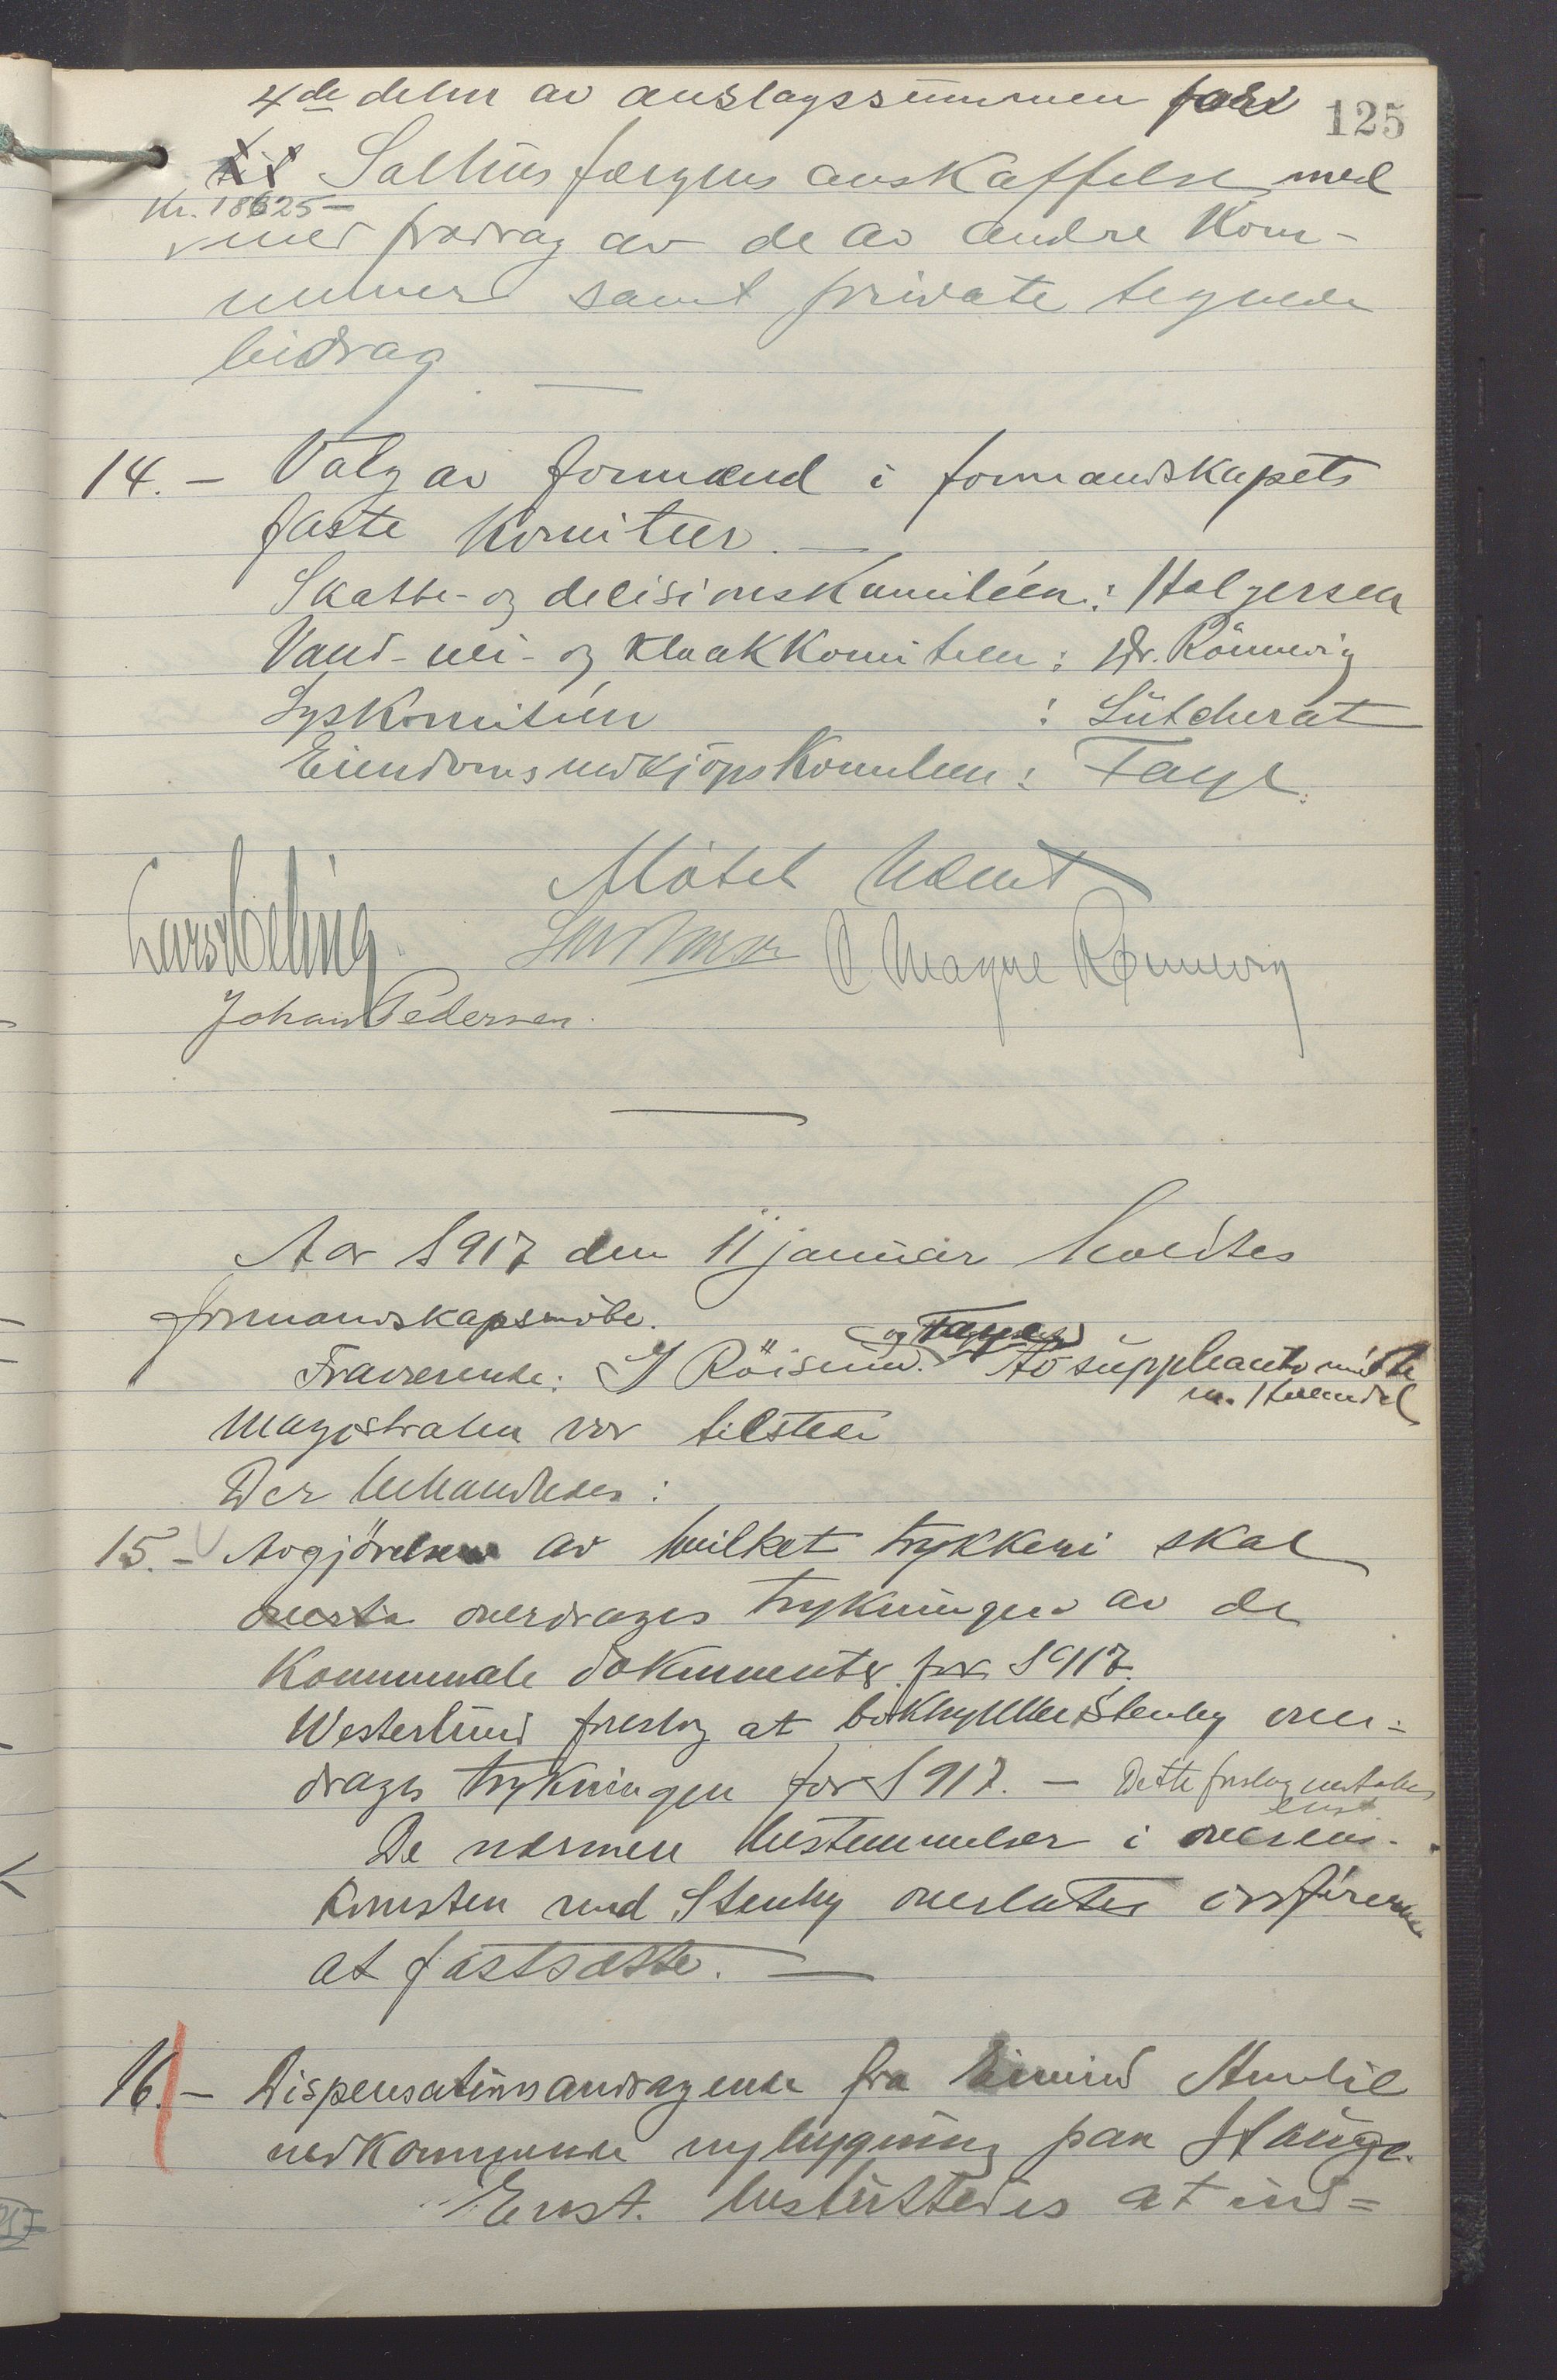 125
4de delen av anslagssummen for
Salhusfærgens anskaffelse med
Kr. 18625 –
med fradrag av de av andre Kom-
muner samt private tegnede
bidrag
14. – Valg av formænd i formandskapets
faste Komiteer. –
Skatte- og decisionskomitéen: Holgersen
Vand- vei- og Kloakkomiteen: Dr. Rönnevig
Lyskomitéen : Lütcherat
Eiendomsindkjöpskomiteen: Faye
Mötet hævet
Lars Meling
Magne Rønnevig
Johan Pedersen.
Aar 1917 den 11 januar holdtes
formandskapsmöte.
Fraværende: Röisund. og Faye Av suppleanter mötte
Magistraten var tilstede
Der behandledes:
15. – Avgjörelse av hvilket trykkeri skal
overdrages trykningen av de
Kommunale dokumenter for 1917.
Westerlund foreslog at boktrykker Stenby over-
drages trykningen for 1917. – Dette forslag vedtokes
enst
De nærmere bestemmelser i overens-
komsten med Stenby overlates ordföreren
at fastsætte. –
16. – Dispensationsandragende fra
vedkommende nybygning paa Hauge.
Enst. besluttedes at ind=